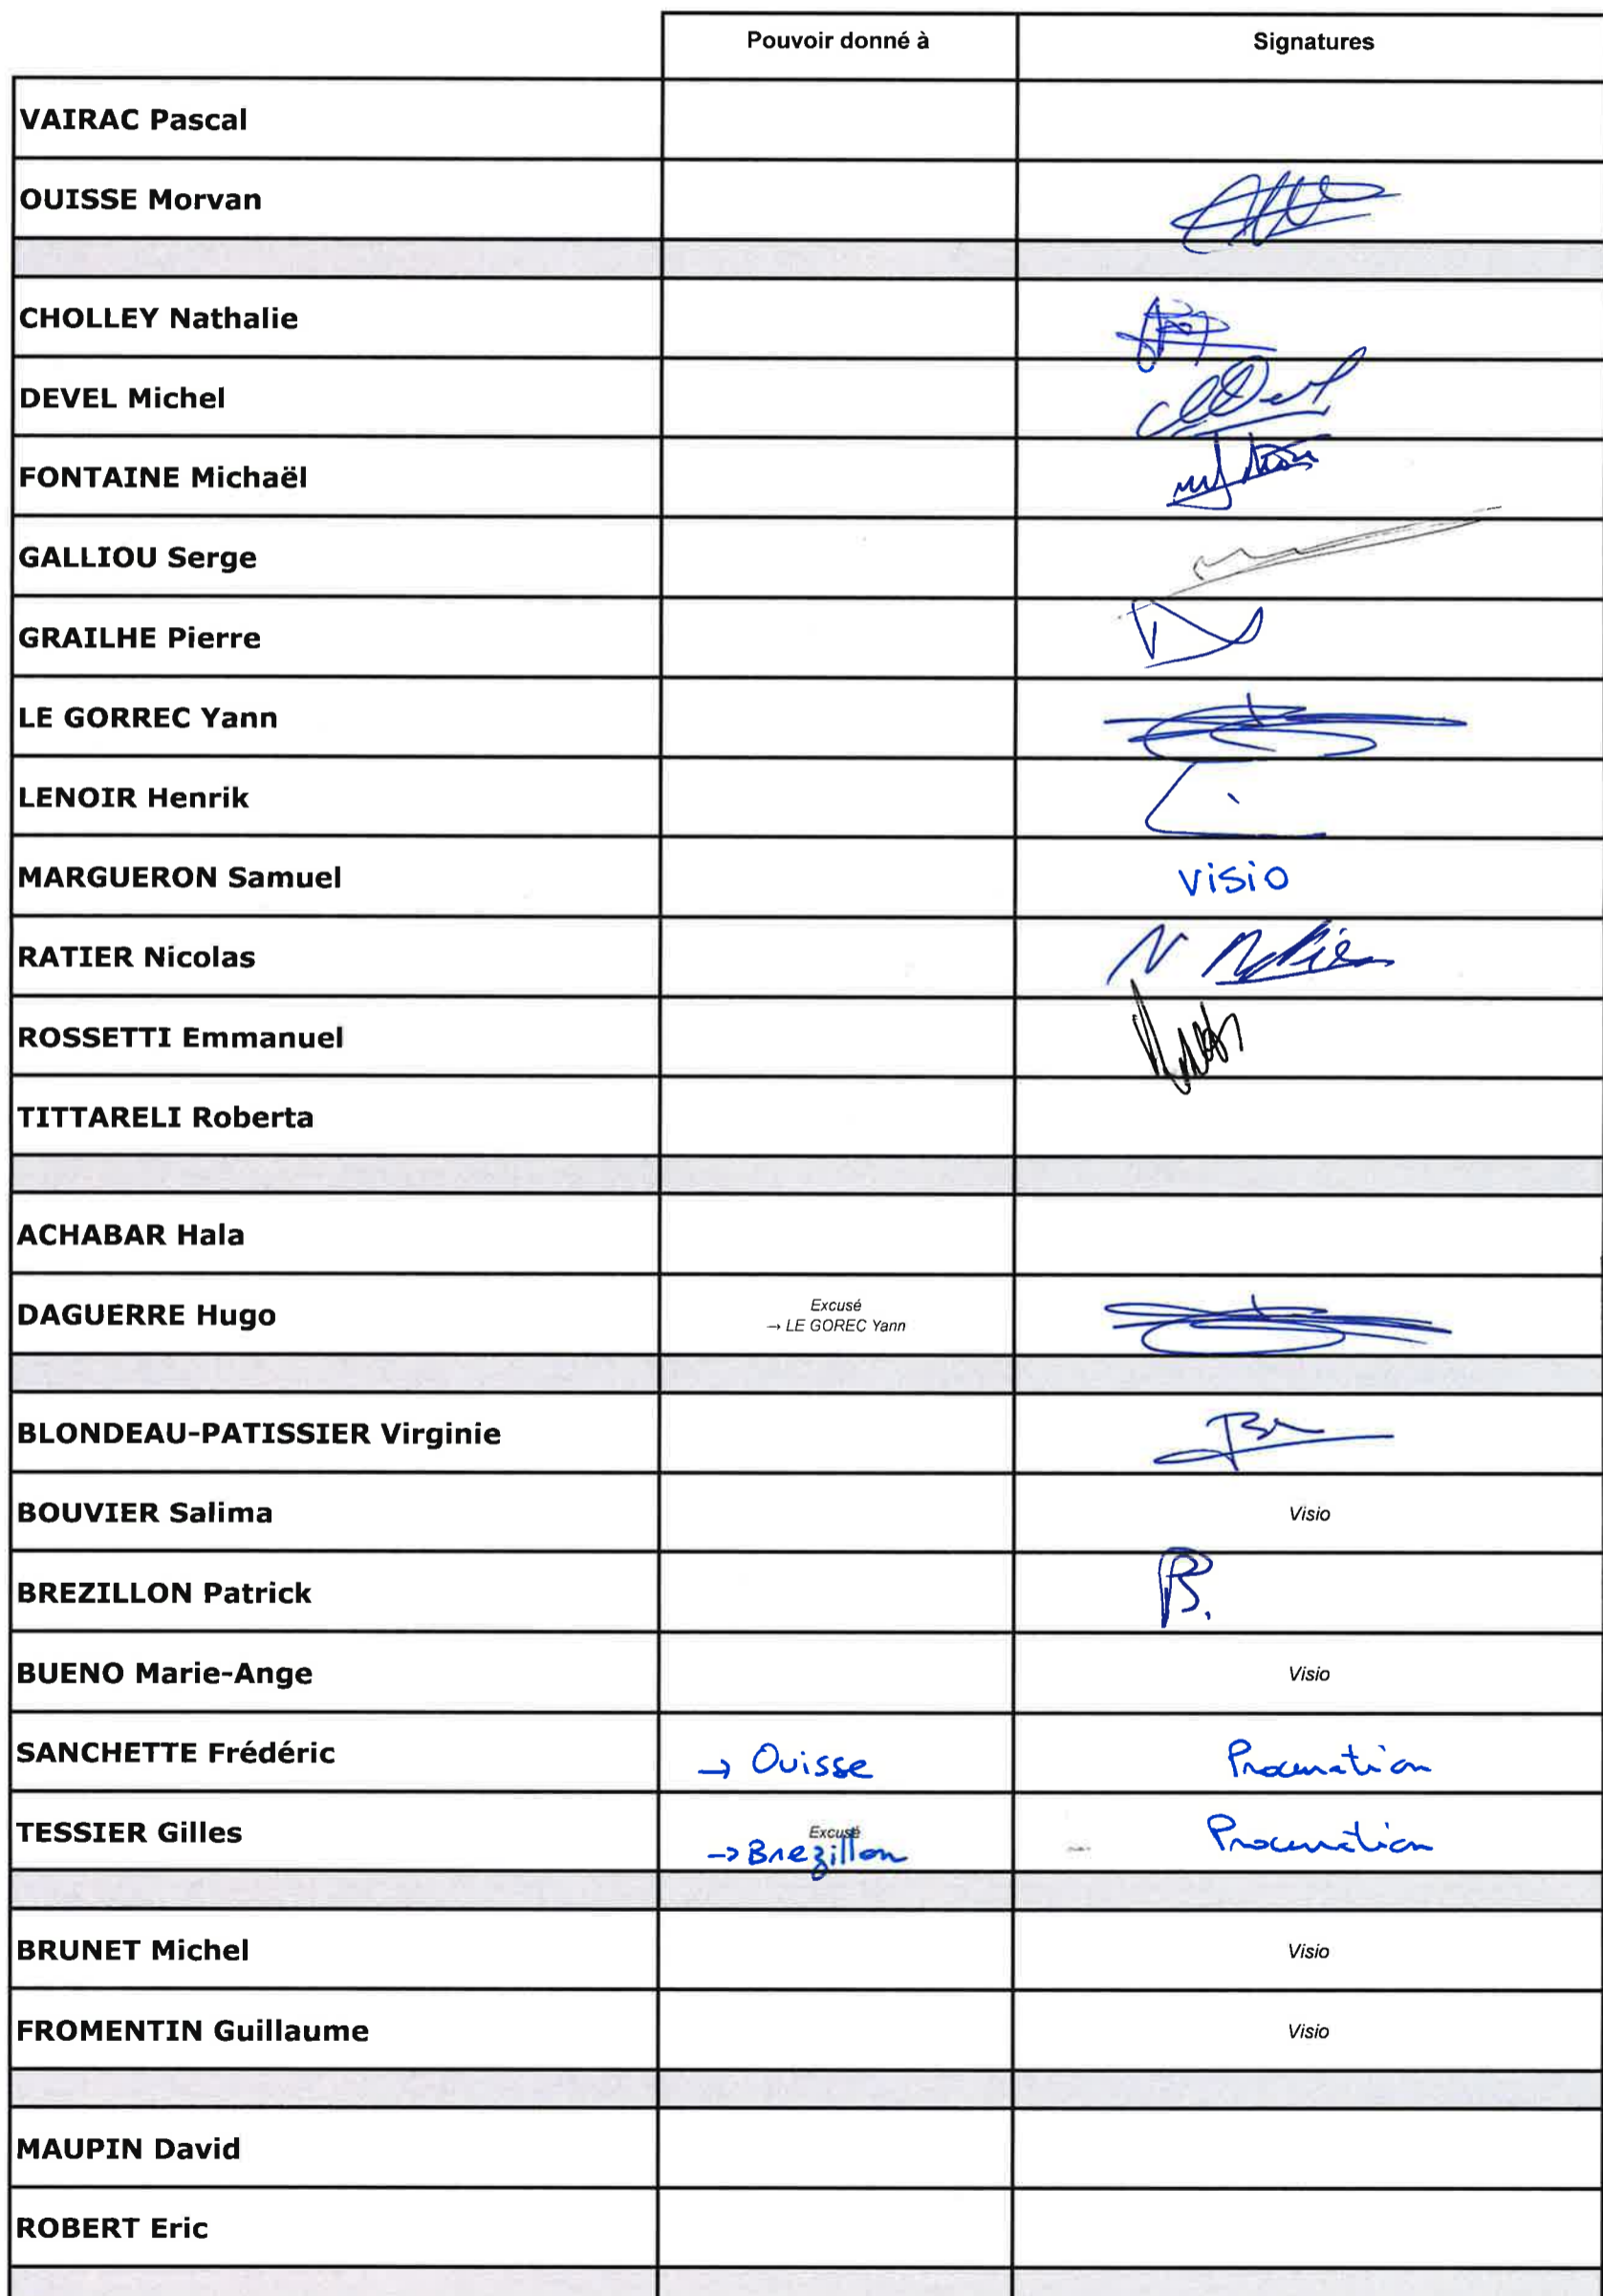 Pouvoir donné à Signatures
VAIRAC Pascal
OUISSE Morvan
CHOLLEY Nathalie
DEVEL Michel
FONTAINE Michaël
GALLIOU Serge
GRAILHE Pierre
LE GORREC Yann
LENOIR Henrik
MARGUERON Samuel visio
RATIER Nicolas
ROSSETTI Emmanuel
TITTARELI Roberta
ACHABAR Hala
DAGUERRE Hugo Excusé
→ LE GOREC Yann
BLONDEAU-PATISSIER Virginie
BOUVIER Salima Visio
BREZILLON Patrick
BUENO Marie-Ange Visio
SANCHETTE Frédéric → Ouisse Procuration
TESSIER Gilles Excusé Procuration
→ Brezillon
BRUNET Michel Visio
FROMENTIN Guillaume Visio
MAUPIN David
ROBERT Eric